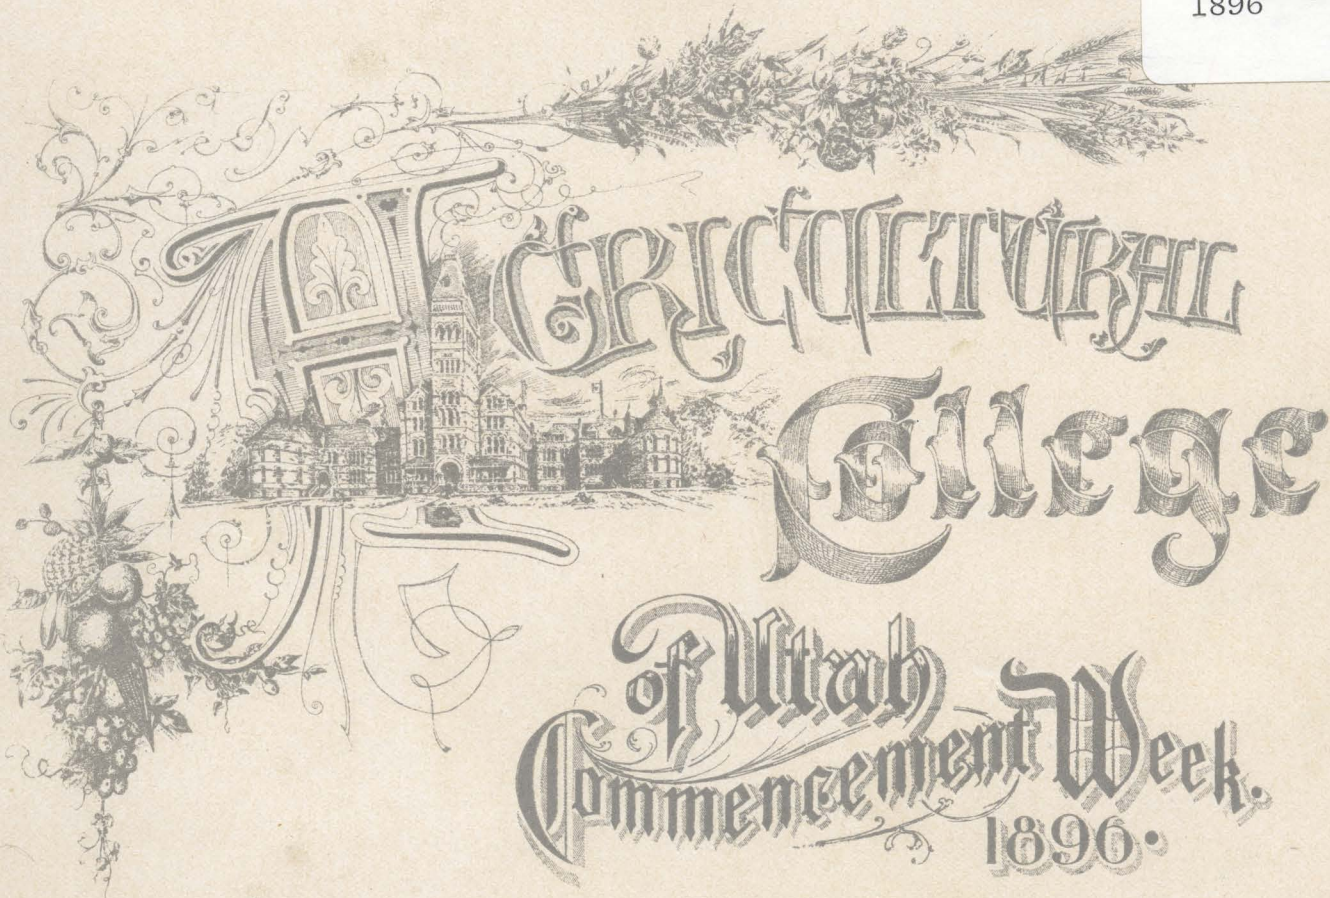 1896
AGRICULTURAL
College
of Utah
Commencement Week.
1896.